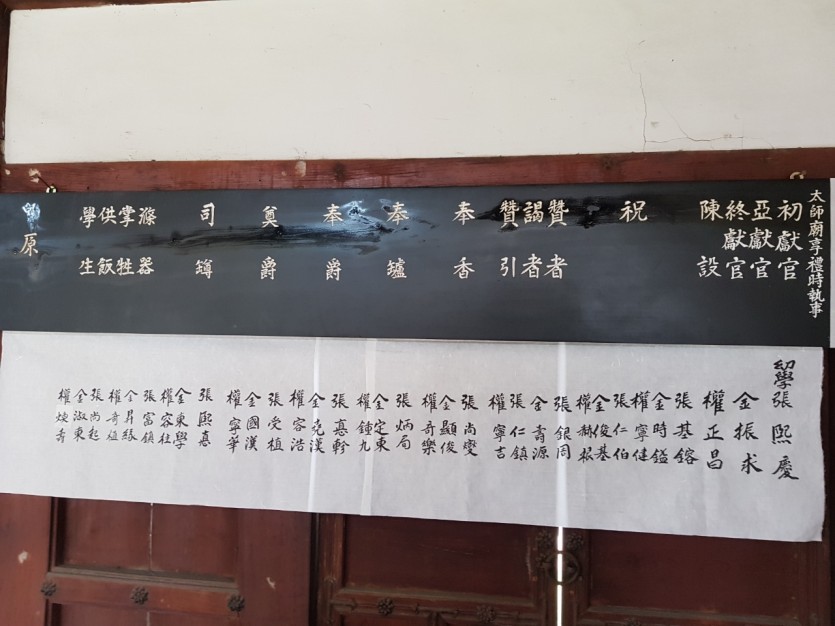 太師廟享禮時執事
初獻官
亞獻官
終獻官
陳設
祝
贊者
謁者
贊引
奉香
奉爐
奉爵
奠爵
司罇
滌器
掌牲
供飯
學生
原
幼學張熙慶
金振求
權正昌
張基鎔
金時鎰
權寧健
張仁伯
金俊基
權赫根
張銀周
金壽源
張仁鎮
權寧吉
張尚燮
金顯俊
權奇樂
張炳局
金定東
權鍾九
張憙軫
金堯漢
權容浩
張受植
金國漢
權寧華
張熙憙
金東學
權容柱
張富鎮
金昇縁
權奇植
張尚起
金淑東
權